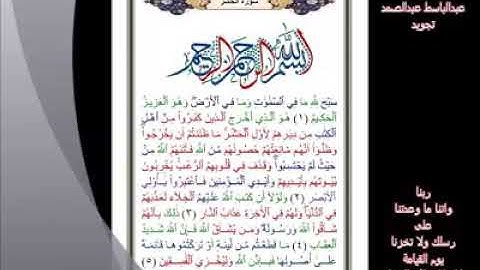 عبدالباسط عبدالصمد
تجويد
سورة الحشر
بسم الله الرحمن الرحيم
سَبَّحَ لِلَّهِ مَا فِي ٱلسَّمَٰوَٰتِ وَمَا فِي ٱلْأَرْضِ وَهُوَ ٱلْعَزِيزُ
ٱلْحَكِيمُ (١) هُوَ ٱلَّذِي أَخْرَجَ ٱلَّذِينَ كَفَرُوا مِنْ أَهْلِ
ٱلْكِتَٰبِ مِن دِيَٰرِهِمْ لِأَوَّلِ ٱلْحَشْرِ مَا ظَنَنتُمْ أَن يَخْرُجُوا
وَظَنُّوا أَنَّهُم مَّانِعَتُهُمْ حُصُونُهُم مِّنَ ٱللَّهِ فَأَتَىٰهُمُ ٱللَّهُ مِنْ
حَيْثُ لَمْ يَحْتَسِبُوا وَقَذَفَ فِي قُلُوبِهِمُ ٱلرُّعْبَ يُخْرِبُونَ
بُيُوتَهُم بِأَيْدِيهِمْ وَأَيْدِي ٱلْمُؤْمِنِينَ فَٱعْتَبِرُوا يَٰٓأُو۟لِي
ٱلْأَبْصَٰرِ (٢) وَلَوْلَا أَن كَتَبَ ٱللَّهُ عَلَيْهِمُ ٱلْجَلَاءَ لَعَذَّبَهُمْ
فِي ٱلدُّنْيَا وَلَهُمْ فِي ٱلْءَاخِرَةِ عَذَابُ ٱلنَّارِ (٣) ذَٰلِكَ بِأَنَّهُمْ
شَاقُّوا ٱللَّهَ وَرَسُولَهُ وَمَن يُشَاقِّ ٱللَّهَ فَإِنَّ ٱللَّهَ شَدِيدُ
ٱلْعِقَابِ (٤) مَا قَطَعْتُم مِّن لِّينَةٍ أَوْ تَرَكْتُمُوهَا قَائِمَةً
عَلَىٰ أُصُولِهَا فَبِإِذْنِ ٱللَّهِ وَلِيُخْزِيَ ٱلْفَٰسِقِينَ (٥)
ربنا
واتنا ما وعدتنا
على
رسلك ولا تخزنا
يوم القيامة